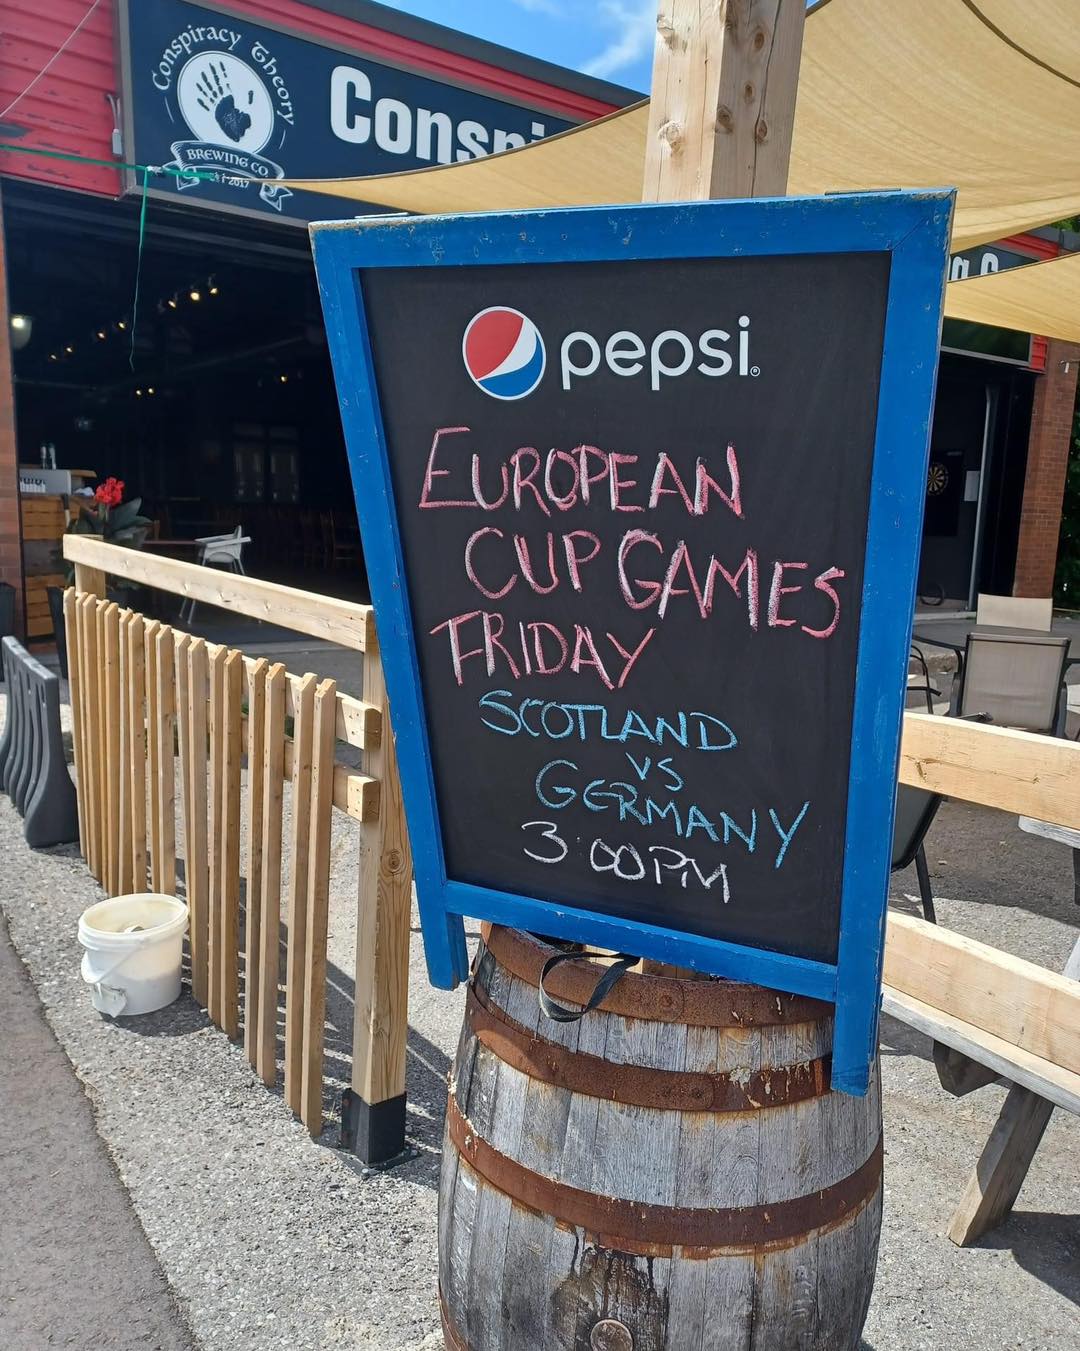 Conspiracy Theory
BREWING CO
Conspi
pepsi
EUROPEAN
CUP GAMES
FRIDAY
SCOTLAND
VS
GERMANY
3:00PM